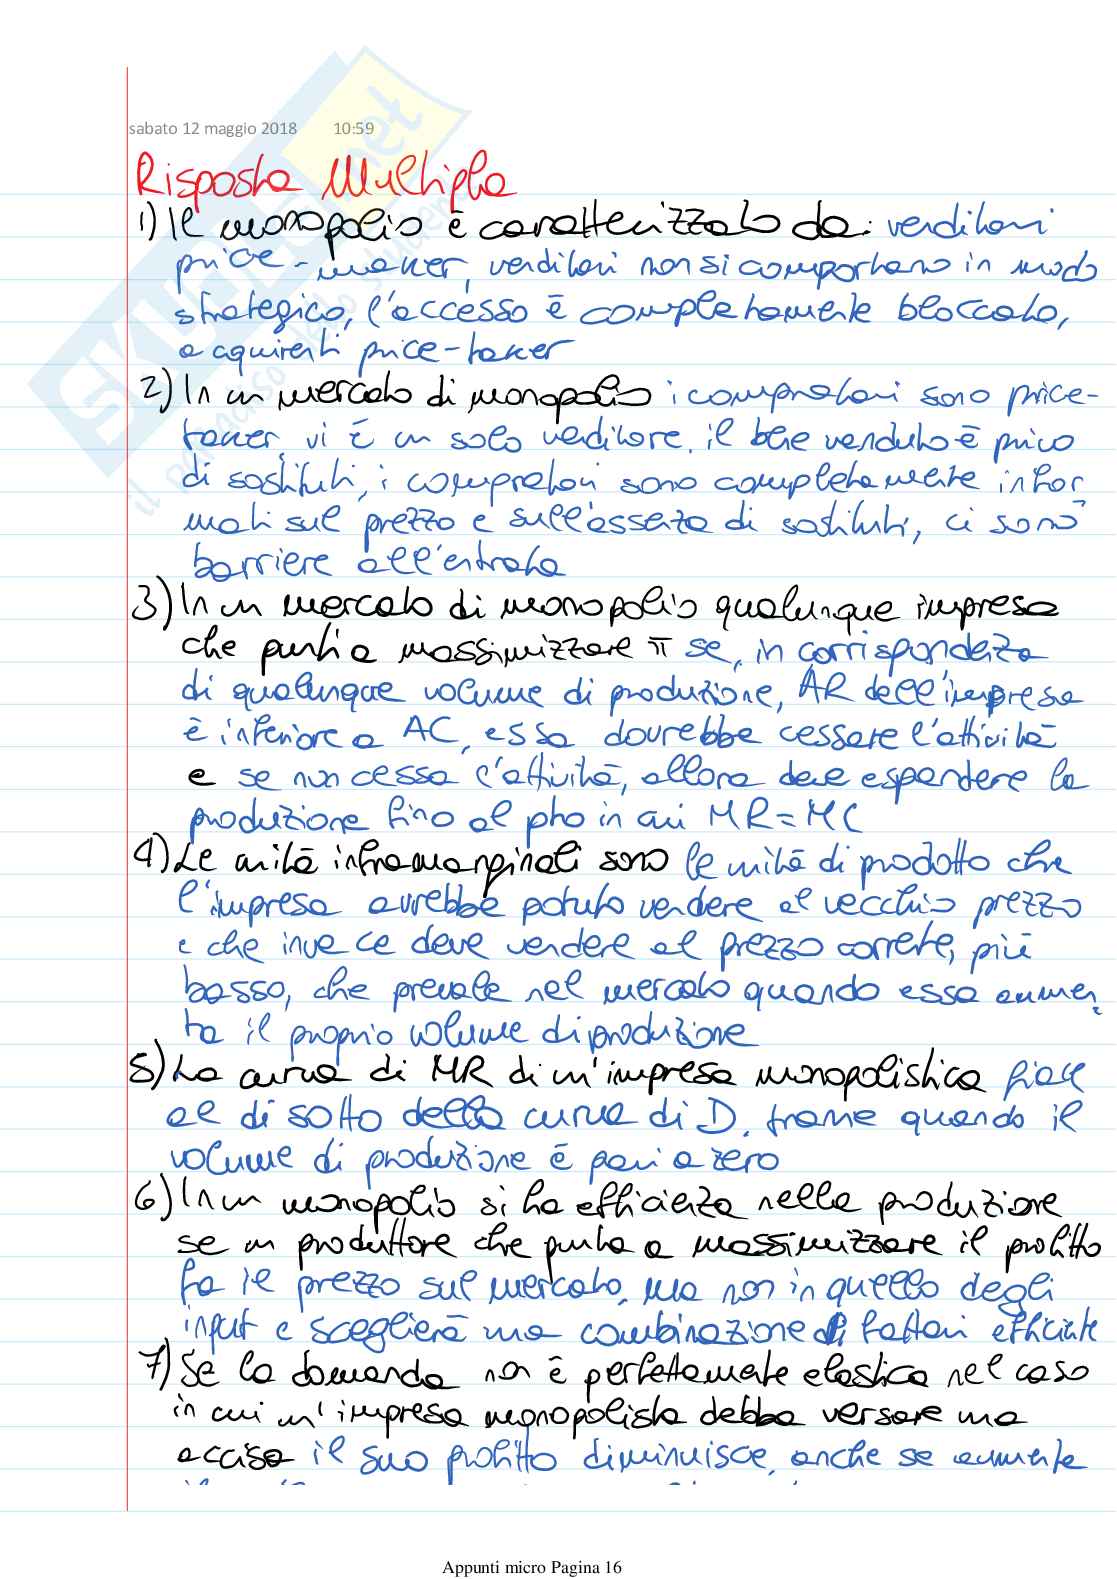 sabato 12 maggio 2018 10:59
Risposta Multipla
1) Il monopolio è caratterizzato da: venditori
price-maker, venditori non si comportano in modo
strategico, l'accesso è completamente bloccato,
acquirenti price-taker
2) In un mercato di monopolio i compratori sono price-
taker, vi è un solo venditore, il bene venduto è privo
di sostituti, i compratori sono completamente infor
mati sul prezzo e sull'assenza di sostituti, ci sono
barriere all'entrata
3) In un mercato di monopolio qualunque impresa
che punti a massimizzare π se, in corrispondenza
di qualunque volume di produzione, AR dell'impresa
è inferiore a AC, essa dovrebbe cessare l'attività
e se non cessa l'attività, allora deve espandere la
produzione fino al pto in cui MR=MC
4) Le unità inframarginali sono le unità di prodotto che
l'impresa avrebbe potuto vendere al vecchio prezzo
e che invece deve vendere al prezzo corrente, più
basso, che prevale nel mercato quando essa aumen
ta il proprio volume di produzione
5) La curva di MR di un'impresa monopolistica giace
al di sotto della curva di D, tranne quando il
volume di produzione è pari a zero
6) In un monopolio si ha efficienza nella produzione
se un produttore che punta a massimizzare il profitto
fa il prezzo sul mercato, ma non in quello degli
input e sceglierà una combinazione di fattori efficiente
7) Se la domanda non è perfettamente elastica nel caso
in cui un'impresa monopolista debba versare una
accisa il suo profitto diminuisce, anche se aumenta
Appunti micro Pagina 16
skuola.net
il paradiso dello studente